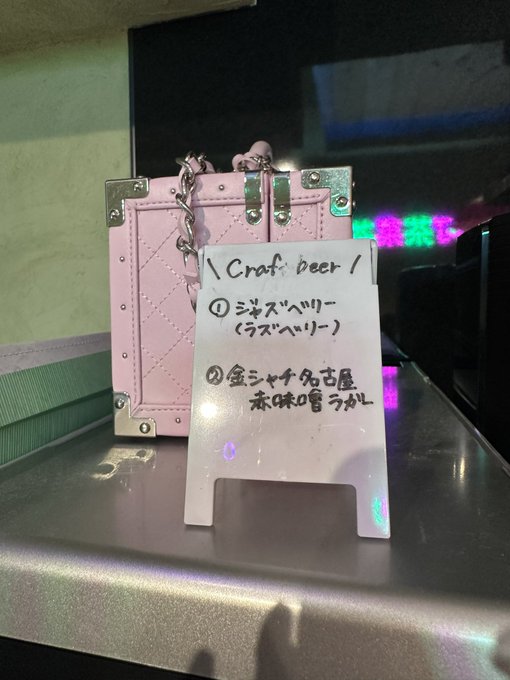 \ Craft beer /
① ジャズベリー
(ラズベリー)
② 金シャチ名古屋
赤味噌ラガー